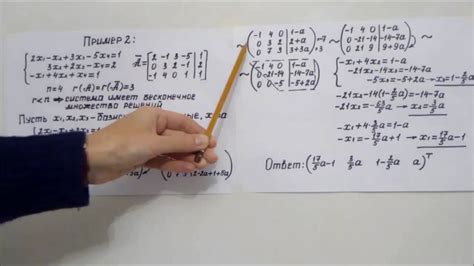 Пример 2:
2x₁-x₂+3x₃-5x₄=1
3x₂+2x₃-x₄=2
-x₁+4x₂+x₄=1
Ā=[2 -1 3 -5 | 1
0 3 2 -1 | 2
-1 4 0 1 | 1]
n=4 r(A)=r(Ā)=3
r<n ⇒ система имеет бесконечное
множество решений
Пусть x₁,x₂,x₃-
~(-1 4 0 | 1-a
0 3 2 | 2+a
0 7 3 | 3+3a)
~(-1 4 0 | 1-a
0 -21 -14 | -14-7a
0 21 9 | 9+9a)
~(-1 4 0 | 1-a
0 -21 -14 | -14-7a
0 0 -5 | -5+2a)
-x₁+4x₂=1-a
-21x₂-14x₃=-14-7a
-5x₃=-5+2a → x₃=1-2/5a
-21x₂-14(1-2/5a)=-14-7a
-x₁+4·3/5a=1-a
-x₁=-17/5a+1 → x₁=17/5a-1
Ответ: (17/5a-1 3/5a 1-2/5a a)ᵀ